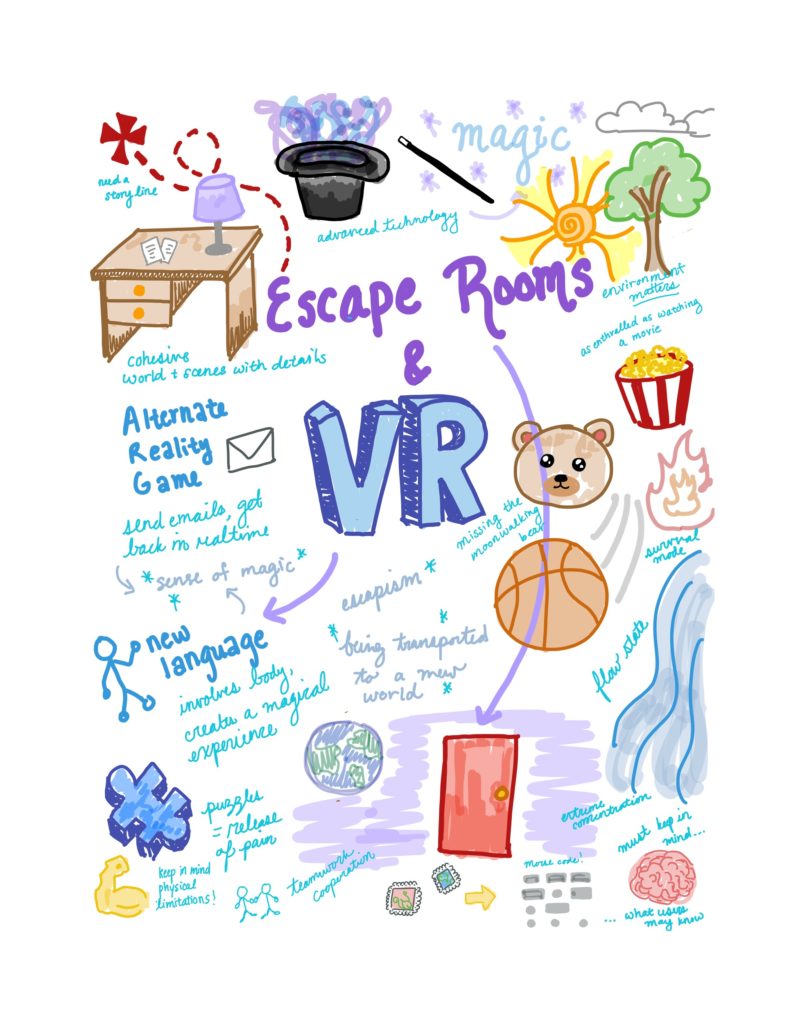 magic
need a
story line
advanced technology
Escape Rooms
&
VR
environment
matters
as enthralled as watching
a movie
cohesive
world + scenes with details
Alternate
Reality
Game
send emails, get
back in realtime
*sense of magic*
*
missing the
moonwalking
bear
survival
mode
escapism *
*being transported
to a new
world *
new
language
involves body,
creates a magical
experience
flow state
puzzles
= release
of pain
extreme
concentration
must keep in
mind...
keep in mind
physical
limitations!
teamwork
cooperation
morse code!
... what users
may know